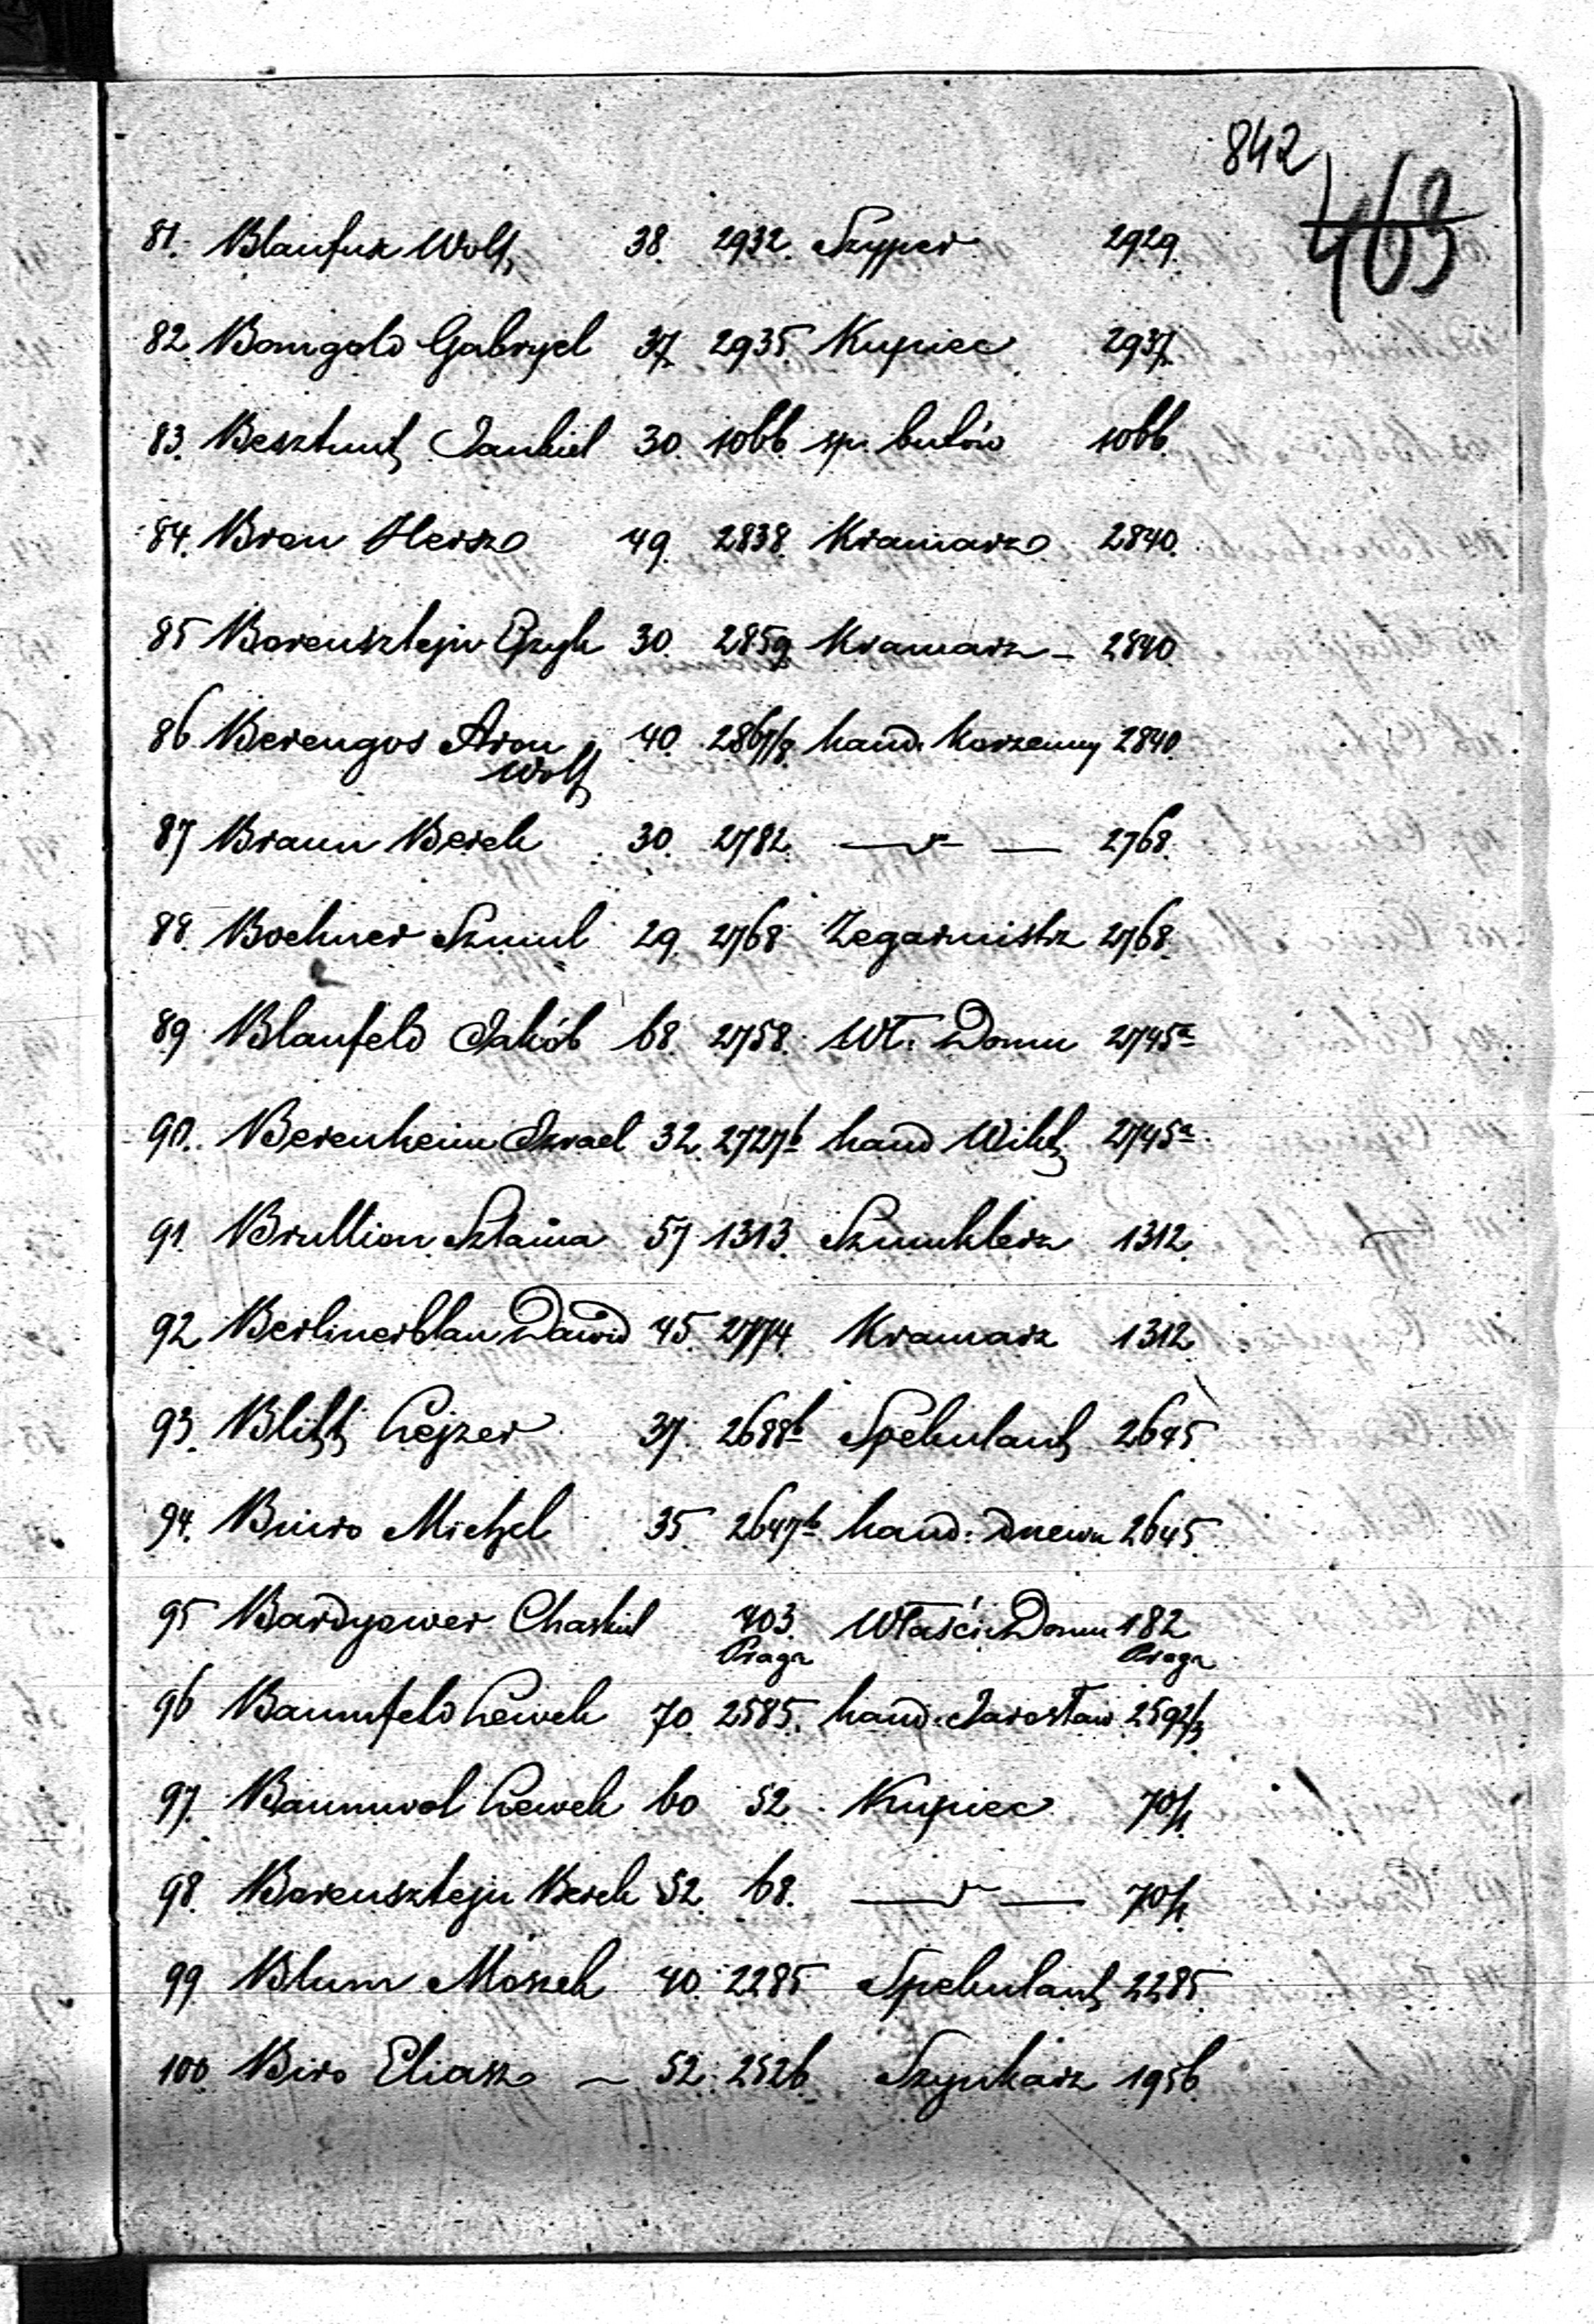 842
463
81. Blaufux Wolf 38. 2932. Szyper 2929.
82. Bomgold Gabryel 37. 2935. Kupiec 2937.
83. Besztimt Jankiel 30. 1066 sp. butów 1066.
84. Bron Hersz 49. 2838. Kramarz 2840.
85 Borensztejn Ejzyk 30. 2859 Kramarz - 2840.
86 Berengos Aron 40. 2867/8. hand. Korzenny 2840.
Wolf
87 Braun Berek 30. 2782. —„— 2768.
88. Bochner Szmul 29. 2768 Zegarmistrz 2768.
89. Blaufeld Jakób 68. 2758. Wł. Domu 2745a
90. Berenheim Izrael 32. 2727b hand Wikt. 2745a
91. Brullion Szlama 57 1313. Szmuklerz 1312.
92 Berlinerblau Dawid 45. 2774. Kramarz 1312.
93. Blitt Lejzer 37. 2688b Spekulant 2645.
94. Biuro Michel 35. 2647b hand. drzewa 2645.
95 Bardyower Chaskiel 403. Właści. Domu 182
Praga Praga
96 Baumfeld Lewek 70. 2585. hand. Jarosław 2592/3
97. Baumwol Lewek 60 52. Kupiec 70/1.
98. Borensztejn Berek 52. 68. —„— 70/1.
99. Blum Moszek 40. 2285 Spekulant 2285.
100 Biro Eliasz - 52. 2526 Szynkarz 1956